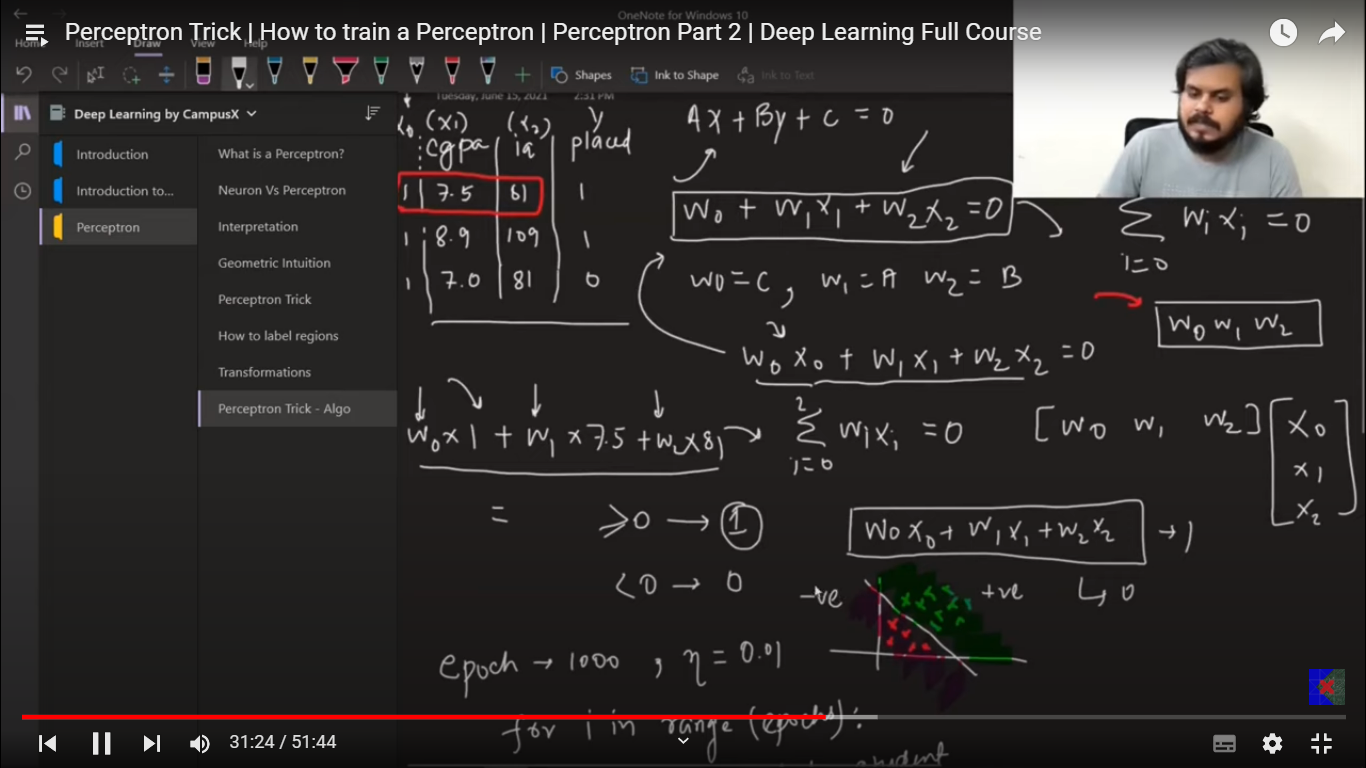 OneNote for Windows 10
Perceptron Trick | How to train a Perceptron | Perceptron Part 2 | Deep Learning Full Course
Home Insert Draw View Help
Shapes Ink to Shape Ink to Text
Deep Learning by CampusX
Introduction
Introduction to...
Perceptron
What is a Perceptron?
Neuron Vs Perceptron
Interpretation
Geometric Intuition
Perceptron Trick
How to label regions
Transformations
Perceptron Trick - Algo
Tuesday, June 15, 2021 2:31 PM
x₀ (x₁) (x₂) y
cgpa iq placed
1 7.5 81 1
1 8.9 109 1
1 7.0 81 0
Ax + By + C = 0
W₀ + W₁x₁ + W₂x₂ = 0
W₀ = C, W₁ = A W₂ = B
W₀x₀ + W₁x₁ + W₂x₂ = 0
∑ Wᵢxᵢ = 0
i=0
W₀ W₁ W₂
W₀ x 1 + W₁ x 7.5 + W₂ x 81
2
∑ Wᵢxᵢ = 0
i=0
[W₀ W₁ W₂] [x₀
x₁
x₂]
= ≥0 → 1
<0 → 0
W₀x₀ + W₁x₁ + W₂x₂ → 1
↳ 0
-ve +ve
epoch → 1000, η = 0.01
for i in range (epochs):
student
31:24 / 51:44